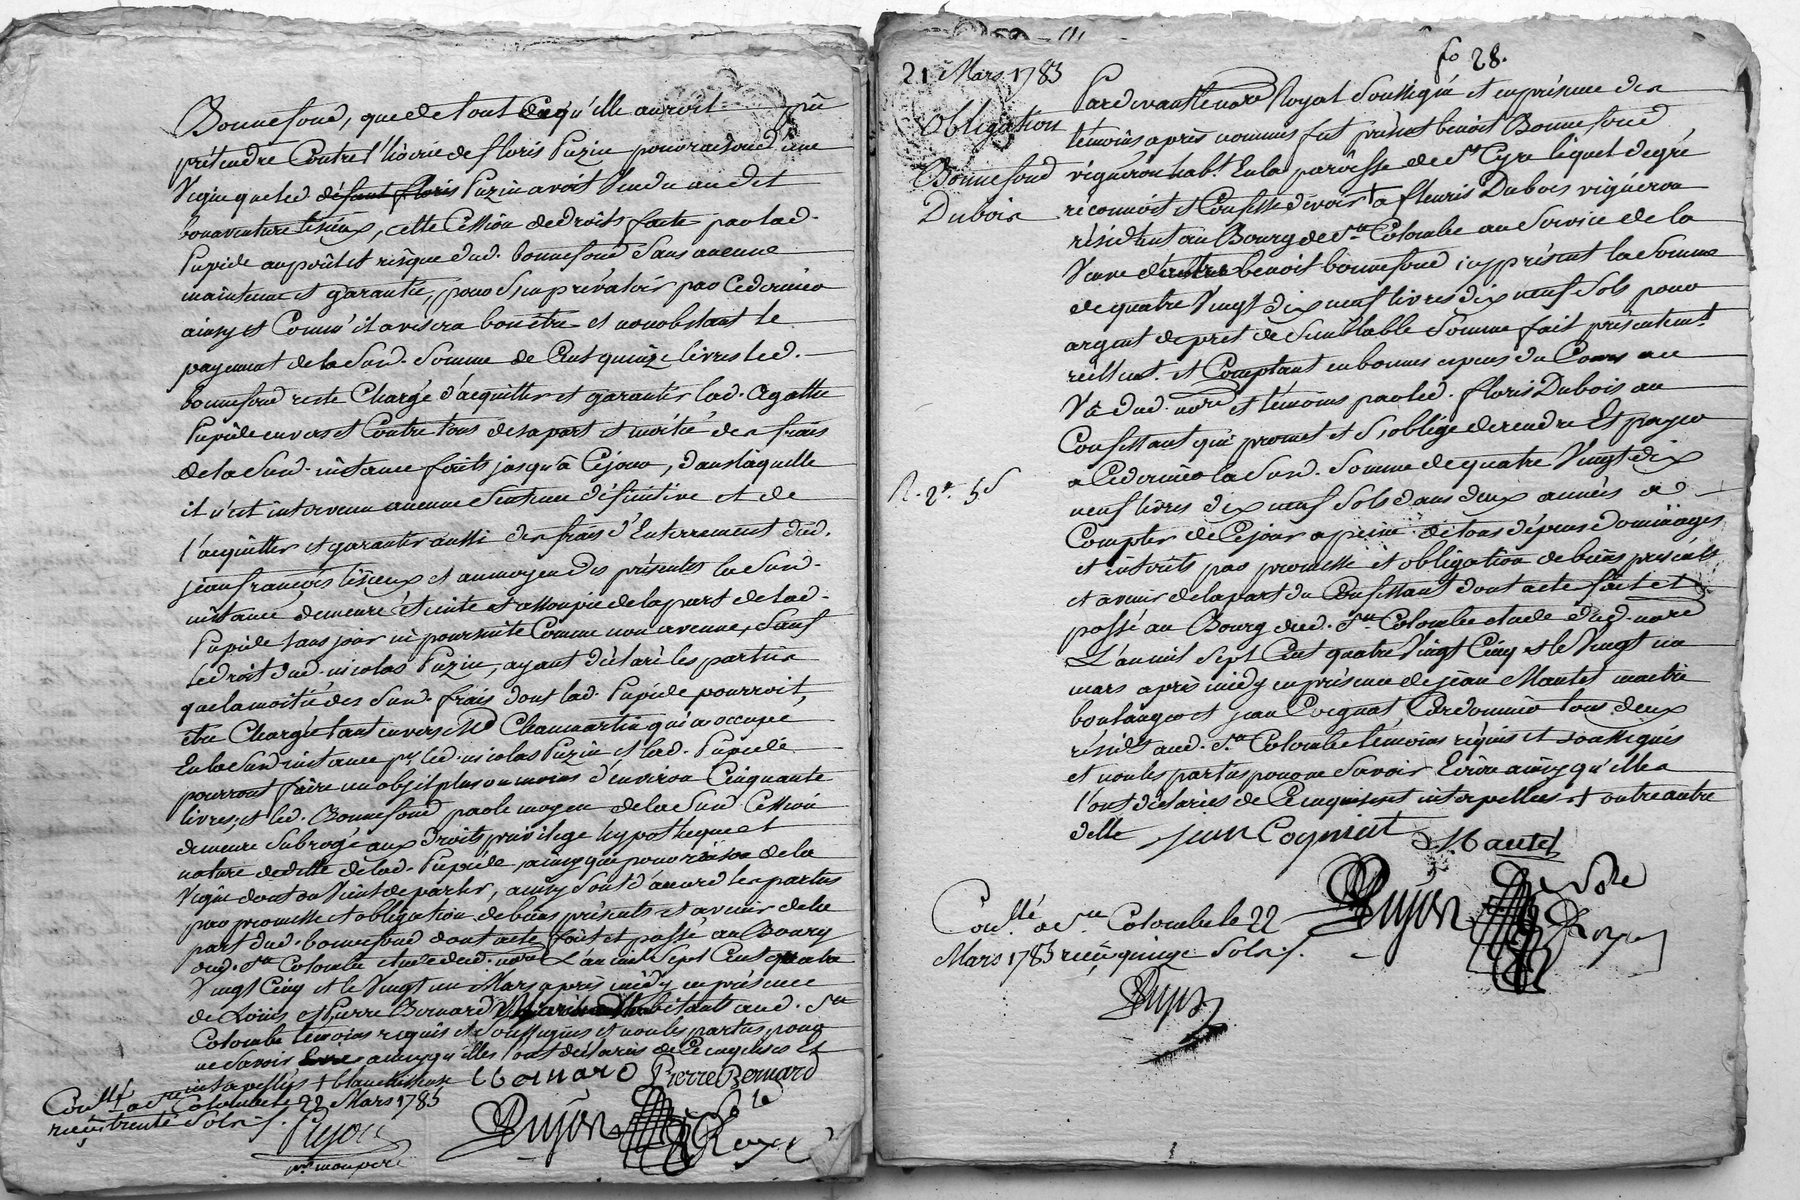 Bonnefond, que de tout ce qu'elle auroit pû
prétendre Contre l'hoirie de floris Puzin pour raison d'une
Vigne que led défunt floris Puzin avoit Vendu audit
bonaventure lisieux, cette Cession de droits faite par lad.
Pupille au poût et risque dud. bonnefond Sans aucune
maintenue et garantie, pour S'en prévaloir par Ce dernier
ainsy et Comm'il avisera bon être et nonobstant le
payement de la Susd. Somme de Cent quinze livres led.
bonnefond reste Chargé d'acquitter et garantir lad. Agathe
Pupille envers et Contre tous de sa part et moitié des frais
de la Susd. instance faits jusqu'à Ce jour, dans laquelle
il n'est intervenu aucune Sentence définitive et de
l'acquitter et garantir aussi des frais d'Enterrement dud.
jean françois lisieux et au moyen des présentes la Susd.
instance demeure éteinte et assoupie de la part de lad.
Pupille Sans jour ni poursuite Comme non avenue, Sauf
le droit dud. nicolas Puzin, ayant déclaré les parties
que la moitié des Susd. frais dont lad. Pupille pourroit
être Chargée tant envers Me Chaumartin qui a occupé
En la Susd instance pr led. nicolas Puzin et lad. Pupille
pourront faire un objet plus ou moins d'environ Cinquante
livres; et led. Bonnefond par le moyen de la Susd Cession
demeure Subrogé aux droits privilege hypotheque et
nature de dette de lad. Pupille, ainsy que pour raison de la
Vigne dont on Vient de parler, ainsy Sont d'accord les parties
par promesse et obligation de biens présents et avenir de la
part dud. bonnefond dont acte fait et passé au Bourg
dud. Ste Colombe étude dud. nore L'an mil Sept Cent quatre
Vingt Cinq et le Vingt un Mars après midy en présence
de Louis et Pierre Bernard habitants aud. Ste
Colombe témoins requis et Soussignés et non les parties pour
ne Savoir ainsy qu'elles l'ont déclaré de Ce enquises et
interpellées + blanchisseuse Bernard Pierre Bernard
Conllé a Ste Colombe le 22 Mars 1785
reçu trente Sols
Pujon
Pujon Nore
Royal
21 Mars 1785
fo 28.
Obligation
Bonnefond
Dubois
R. 2# 5s
Pardevant le nore Royal Soussigné et en présence des
témoins après nommés fut présent benoit Bonnefond
vigneron habt En la paroisse de St Cyr lequel de gré
reconnoit et Confesse devoir + a fleuris Dubois vigneron
résident au Bourg de Ste Colombe au Service de la
Veuve d'autre benoit bonnefond icy présent la Somme
de quatre Vingt dix neuf livres dix neuf Sols pour
argent de prêt de Semblable Somme fait présentemt
réellemt. et Comptant en bonnes especes du Cours au
Vû dud. nore et témoins par led. floris Dubois au
Confessant qui promet et S'oblige de rendre Et payer
a Ce dernier la Susd. Somme de quatre Vingt dix
neuf livres dix neuf Sols dans deux années a
Compter de Ce jour a peine de tous dépens dommages
et intérêts par promesse et obligation de biens présents
et avenir de la part du Confessant dont acte fait et
passé au Bourg dud. Ste Colombe étude dud. nore
L'an mil Sept Cent quatre Vingt Cinq et le Vingt un
mars après midy en présence de jean Mantel maitre
boulanger et jean Coignat Cordonnier tous deux
résidts aud. Ste Colombe témoins requis et Soussignés
et non les parties pour ne Savoir Ecrire ainsy qu'elles
l'ont déclarées de Ce enquises et interpellées + outre autre
dette jean Cogniat Mantel
Conllé a Ste Colombe le 22
Mars 1785 reçu quinze Sols
Pujon
Pujon Nore
Royal